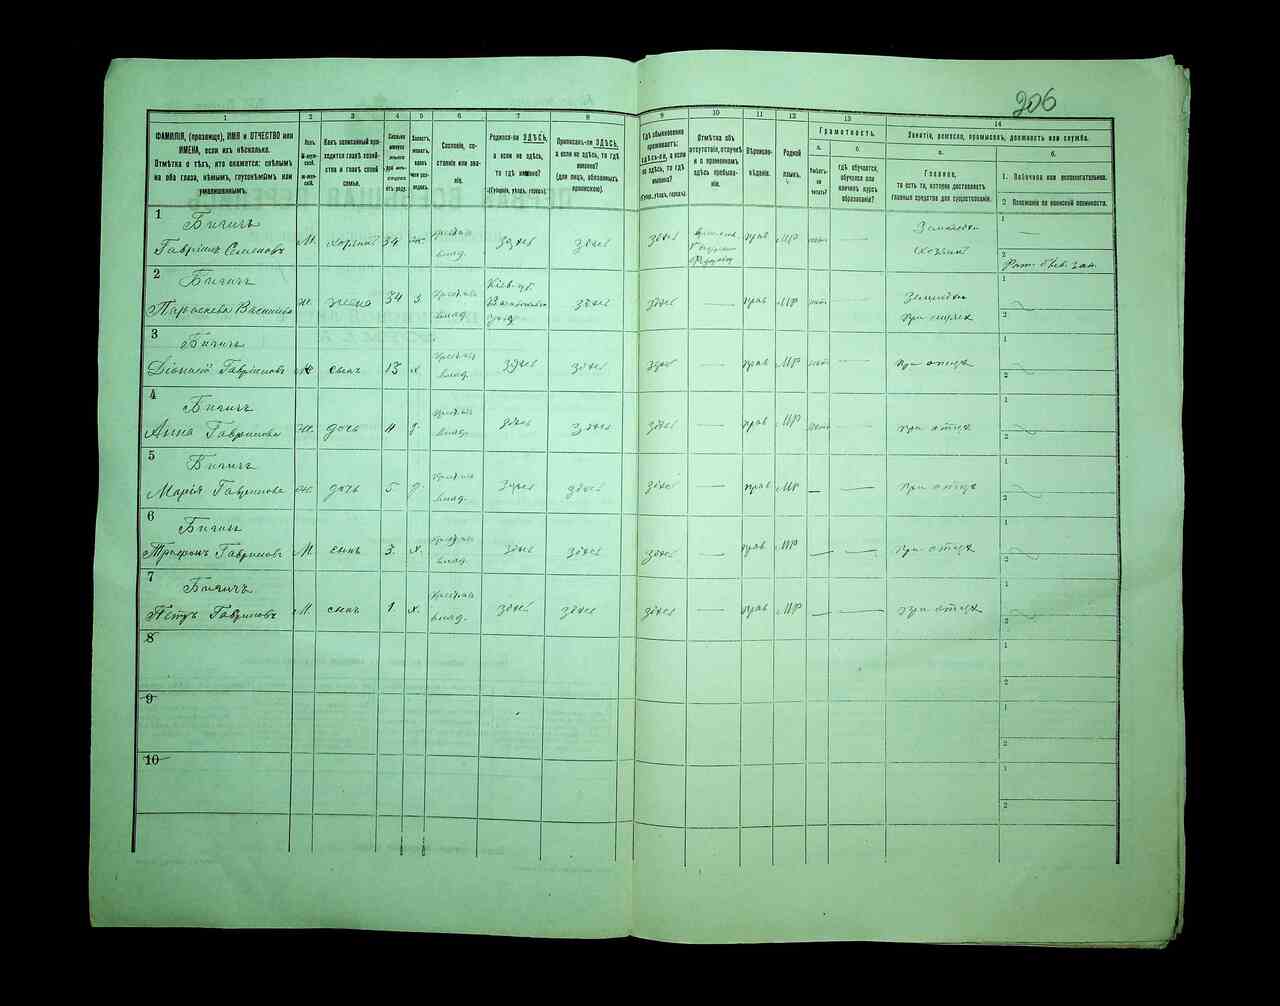 206
1 2 3 4 5 6 7 8 9 10 11 12 13 14
ФАМИЛІЯ, (прозвище), ИМЯ и ОТЧЕСТВО или
ИМЕНА, если ихъ нѣсколько.
Отмѣтка о тѣхъ, кто окажется: слѣпымъ
на оба глаза, нѣмымъ, глухонѣмымъ или
умалишеннымъ.
Полъ.
М-муж-
ской.
Ж-жен-
скій.
Какъ записанный при-
ходится главѣ хозяй-
ства и главѣ своей
семьи.
Сколько
минуло
лѣтъ
отъ роду.
Холостъ,
женатъ,
вдовъ
или раз-
веденъ.
Сословіе, со-
стояніе или зва-
ніе.
Родился-ли ЗДѢСЬ,
а если не здѣсь,
то гдѣ именно?
(Губернія, уѣздъ, городъ).
Приписанъ-ли ЗДѢСЬ,
а если не здѣсь, то гдѣ
именно?
(для лицъ, обязанныхъ
припиской).
Гдѣ обыкновенно
проживаетъ:
ЗДѢСЬ-ли, а если
не здѣсь, то гдѣ
именно?
(Губерн., уѣздъ, городъ).
Отмѣтка объ
отсутствіи, отлучкѣ
и о временномъ
здѣсь пребыва-
ніи.
Вѣроиспо-
вѣданіе.
Родной
языкъ.
Грамотность.
а.
Умѣетъ-
ли
читать?
б.
гдѣ обучается,
обучался или
кончилъ курсъ
образованія?
Занятіе, ремесло, промыселъ, должность или служба.
а.
Главное,
то есть то, которое доставляетъ
главныя средства для существованія.
б.
1. Побочное или вспомогательное.
2 Положеніе по воинской повинности.
1 Бигичъ
Гавріилъ Семеновъ М. хозяинъ 34 ж. крестьян. влад. здѣсь здѣсь здѣсь прав МР нет — хозяинъ 1 — 2
2 Бигичъ
Параскева Васильева ж. жена 34 з. крестьян. влад. Кіев. губ. здѣсь здѣсь — прав МР нет 1 2
3 Бигичъ
Діонисій Гавріиловъ М сынъ 13 х. крестьян. влад. здѣсь здѣсь здѣсь — прав МР нет — при отцѣ 1 2
4 Бигичъ
Анна Гавріилова ж. дочь 11 д. крестьян. влад. здѣсь здѣсь здѣсь — прав МР нет — при отцѣ 1 2
5 Бигичъ
Марія Гавріилова ж. дочь 5 д. крестьян. влад. здѣсь здѣсь здѣсь — прав МР — — при отцѣ 1 2
6 Бигичъ
Трифонъ Гавріиловъ М сынъ 3. х. крестьян. влад. здѣсь здѣсь здѣсь — прав МР — — при отцѣ 1 2
7 Бигичъ
Петръ Гавріиловъ М. сынъ 1. х. крестьян. влад. здѣсь здѣсь здѣсь — прав МР — — при отцѣ 1 2
8 1 2
9 1 2
10 1 2